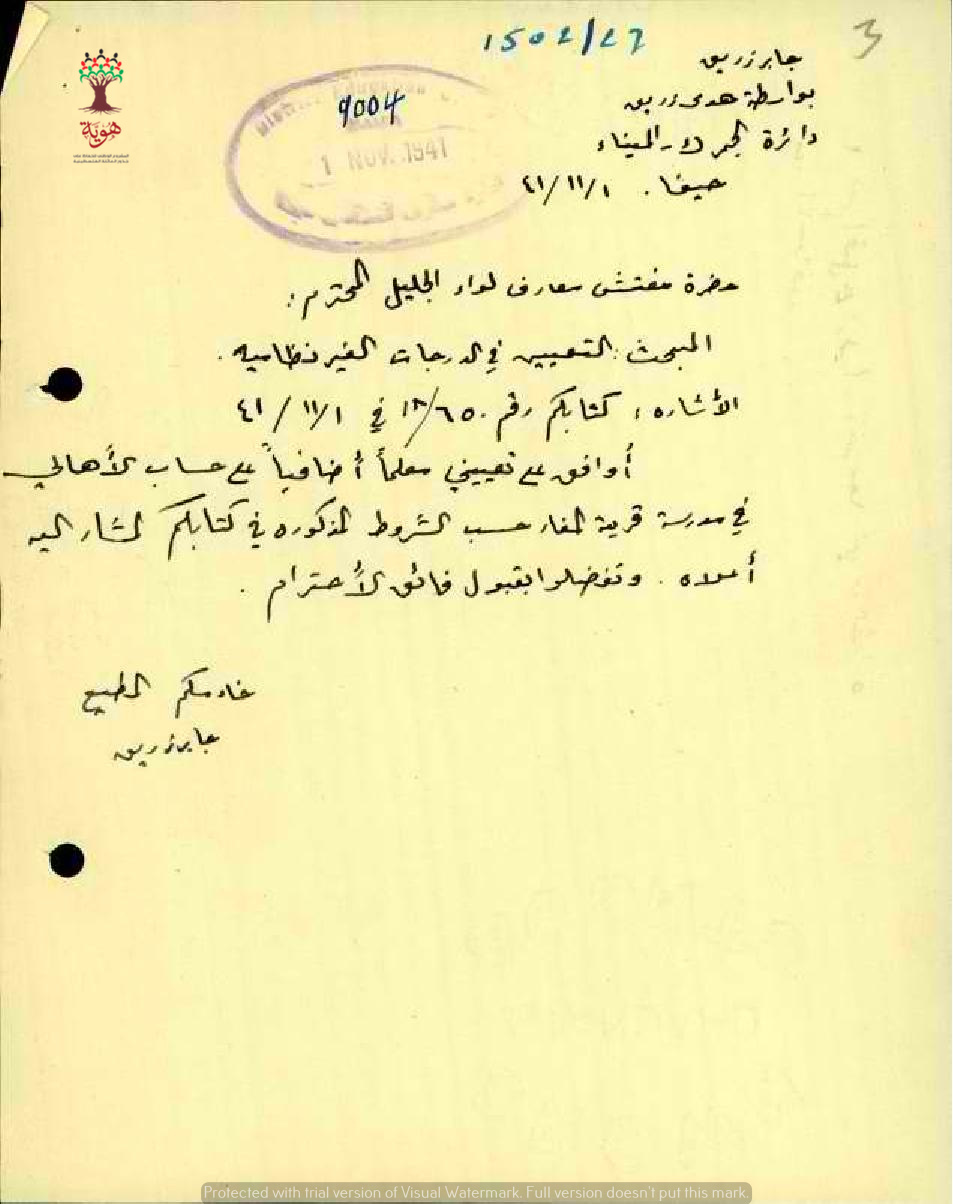 3
1502/27
جابر زريق
بواسطة هدى زريق
دائرة الجمرك - الميناء
حيفا . ٤١/١١/١
9004
1 NOV. 1941
هَوِيّة
حضرة مفتش معارف لواء الجليل المحترم :
المبحث : التعيين في الدرجات الغير نظاميه .
الأشاره : كتابكم رقم ١٢/٦٥٠ في ٤١/١١/١
أوافق على تعييني معلماً أضافياً على حساب الأهالي
في مدرسة قرية المغار حسب الشروط المذكوره في كتابكم المشار اليه
أعلاه . وتفضلوا بقبول فائق الأحترام .
خادمكم المطيع
جابر زريق
Protected with trial version of Visual Watermark. Full version doesn't put this mark.